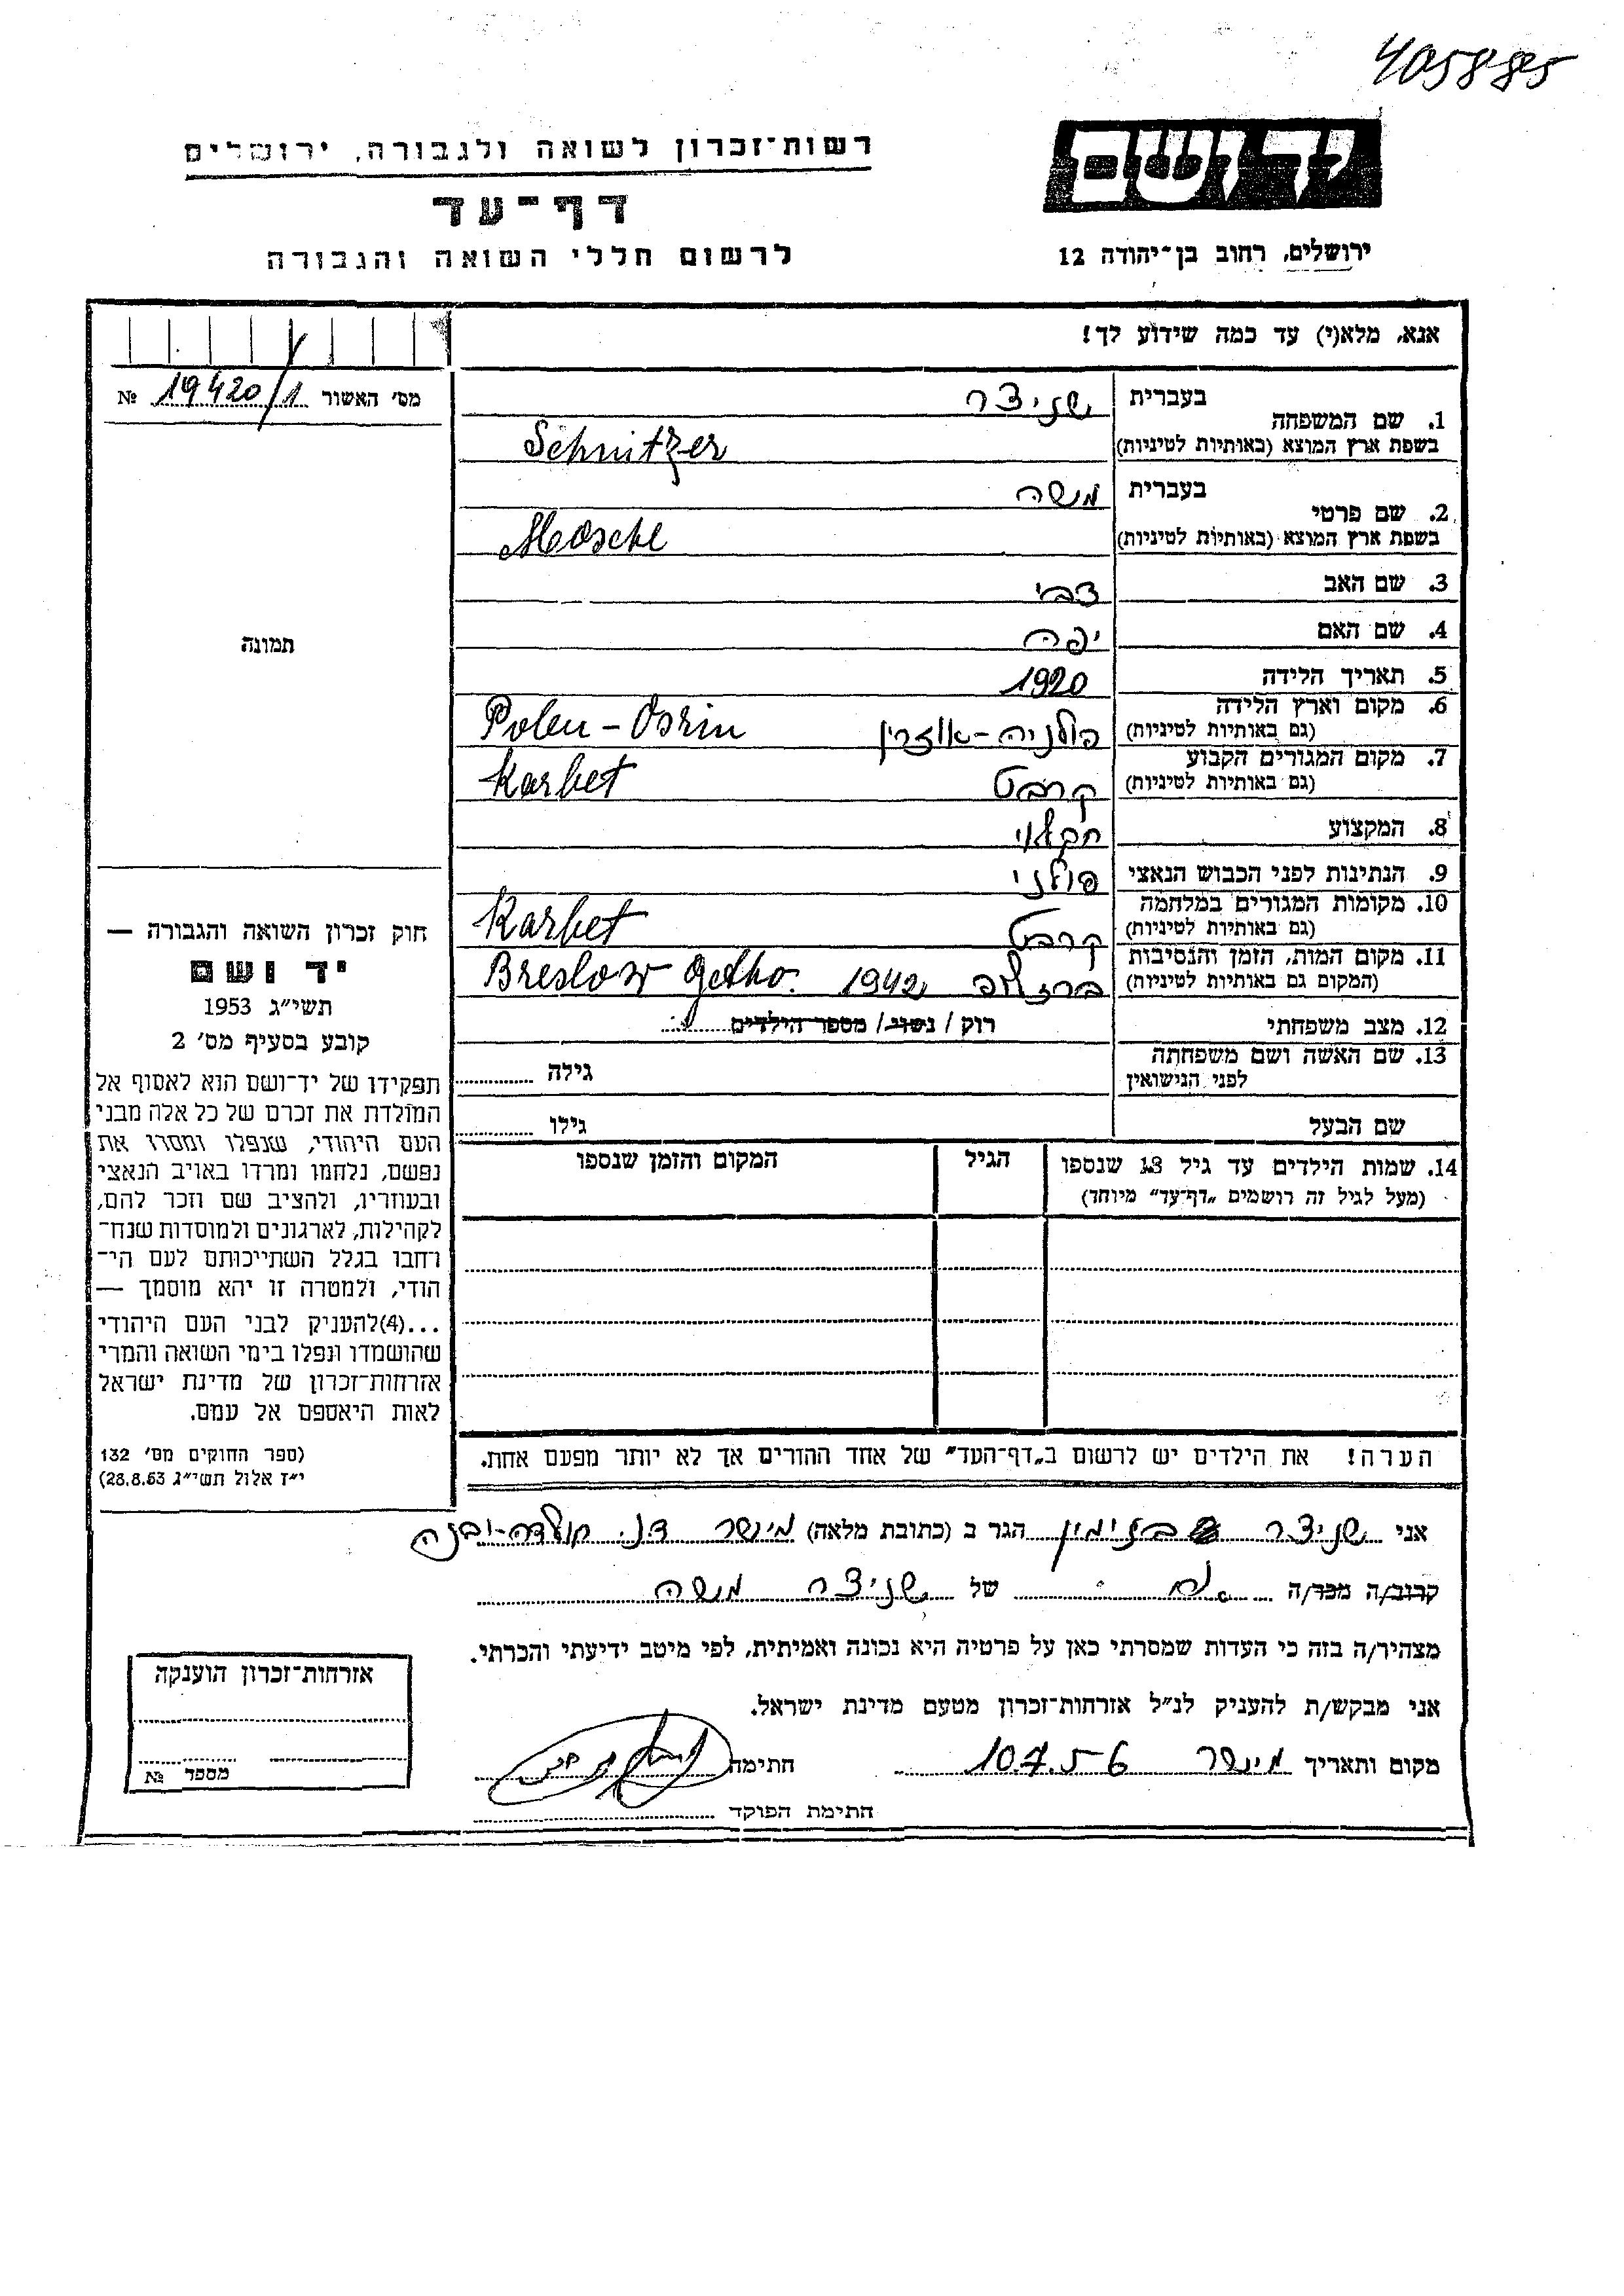 4058885
יד ושם
ירושלים, רחוב בן־יהודה 12
רשות־זכרון לשואה ולגבורה, ירושלים
דף־עד
לרשום חללי השואה והגבורה
אנא, מלא(י) עד כמה שידוע לך!
מס׳ האשור 19420/1 №
1. שם המשפחה
בעברית שניצר
בשפת ארץ המוצא (באותיות לטיניות) Schnitzer
2. שם פרטי
בעברית משה
בשפת ארץ המוצא (באותיות לטיניות) Mosche
3. שם האב צבי
4. שם האם יפה
5. תאריך הלידה 1920
6. מקום וארץ הלידה
(גם באותיות לטיניות) פולניה-אוזרין Polen-Osrin
7. מקום המגורים הקבוע
(גם באותיות לטיניות) קרבט Karbet
8. המקצוע חקלאי
9. הנתינות לפני הכבוש הנאצי פולני
10. מקומות המגורים במלחמה
(גם באותיות לטיניות) קרבט Karbet
11. מקום המות, הזמן והנסיבות
(המקום גם באותיות לטיניות) ברזלוב 1942 Breslow Getho.
12. מצב משפחתי רוק / נשוי / מספר הילדים
13. שם האשה ושם משפחתה
לפני הנישואין גילה
שם הבעל גילו
14. שמות הילדים עד גיל 18 שנספו
(מעל לגיל זה רושמים „דף־עד״ מיוחד)
הגיל
המקום והזמן שנספו
הערה! את הילדים יש לרשום ב„דף־העד״ של אחד ההורים אך לא יותר מפעם אחת.
תמונה
חוק זכרון השואה והגבורה —
יד ושם
תשי״ג 1953
קובע בסעיף מס׳ 2
תפקידו של יד־ושם הוא לאסוף אל
המולדת את זכרם של כל אלה מבני
העם היהודי, שנפלו ומסרו את
נפשם, נלחמו ומרדו באויב הנאצי
ובעוזריו, ולהציב שם וזכר להם,
לקהילות, לארגונים ולמוסדות שנח־
רחבו בגלל השתייכותם לעם הי־
הודי, ולמטרה זו יהא מוסמך —
...(4)להעניק לבני העם היהודי
שהושמדו ונפלו בימי השואה והמרי
אזרחות־זכרון של מדינת ישראל
לאות היאספם אל עמם.
(ספר החוקים מס׳ 132
י״ז אלול תשי״ג 28.8.53)
אני שניצר בנימין הגר ב (כתובת מלאה) מישר ד.נ. חולדה-יבנה
קרוב/ה מכר/ה אח של שניצר משה
מצהיר/ה בזה כי העדות שמסרתי כאן על פרטיה היא נכונה ואמיתית, לפי מיטב ידיעתי והכרתי.
אני מבקש/ת להעניק לנ״ל אזרחות־זכרון מטעם מדינת ישראל.
מקום ותאריך מישר 10.7.56 חתימה
חתימת הפוקד
אזרחות־זכרון הוענקה
מספר №